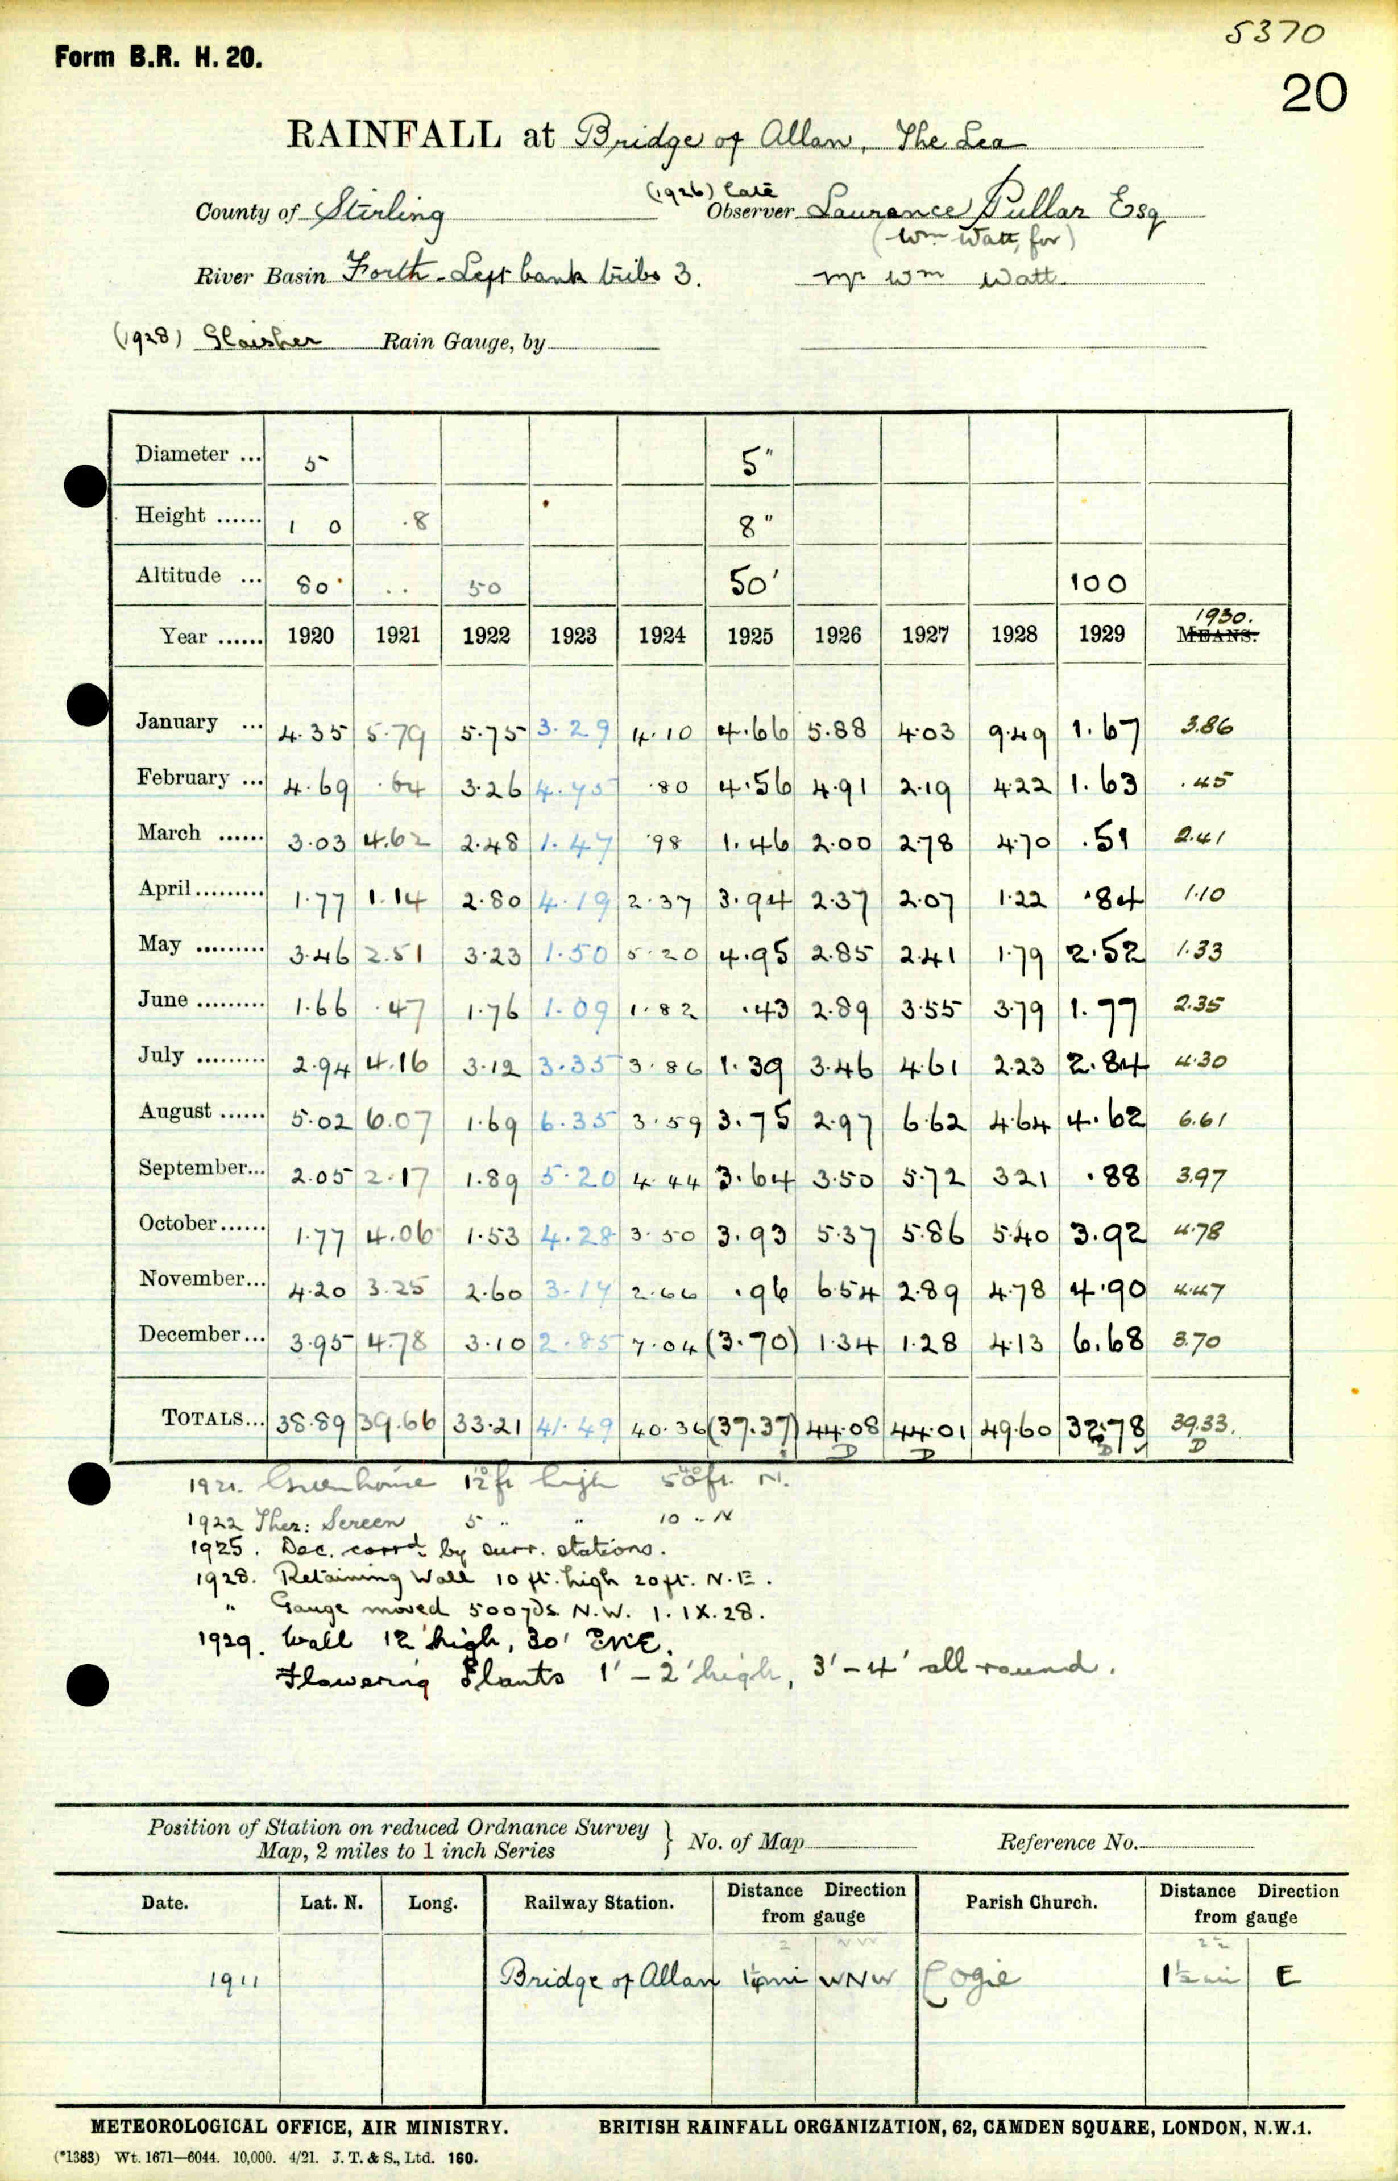 5370
Form B.R. H. 20.
20
RAINFALL at Bridge of Allan, The Lea
(1926) late
County of Stirling Observer Laurence Pullar Esq
(Wm Watt, for)
River Basin Forth - Left bank tribs 3. Mr Wm Watt
(1928) Glaisher Rain Gauge, by
Diameter ... 5 5"
Height ...... 1 0 .8 8"
Altitude ... 80 .. 50 50' 100
1930.
Year ...... 1920 1921 1922 1923 1924 1925 1926 1927 1928 1929 MEANS.
January ... 4.35 5.79 5.75 3.29 4.10 4.66 5.88 4.03 9.49 1.67 3.86
February ... 4.69 .64 3.26 4.75 .80 4.56 4.91 2.19 4.22 1.63 .45
March ...... 3.03 4.62 2.48 1.47 .98 1.46 2.00 2.78 4.70 .51 2.41
April ......... 1.77 1.14 2.80 4.19 2.37 3.94 2.37 2.07 1.22 .84 1.10
May ......... 3.46 2.51 3.23 1.50 5.20 4.95 2.85 2.41 1.79 2.52 1.33
June ......... 1.66 .47 1.76 1.09 1.82 .43 2.89 3.55 3.79 1.77 2.35
July ......... 2.94 4.16 3.12 3.35 3.86 1.39 3.46 4.61 2.23 2.84 4.30
August ...... 5.02 6.07 1.69 6.35 3.59 3.75 2.97 6.62 4.64 4.62 6.61
September... 2.05 2.17 1.89 5.20 4.44 3.64 3.50 5.72 3.21 .88 3.97
October ...... 1.77 4.06 1.53 4.28 3.50 3.93 5.37 5.86 5.40 3.92 4.78
November... 4.20 3.25 2.60 3.17 2.66 .96 6.54 2.89 4.78 4.90 4.47
December ... 3.95 4.78 3.10 2.85 7.04 (3.70) 1.34 1.28 4.13 6.68 3.70
TOTALS... 38.89 39.66 33.21 41.49 40.36 (37.37) 44.08 44.01 49.60 32.78 39.33.
D D D ✓ D
1921. Greenhouse 12 ft high ft. N.
1922 Ther: Screen 5 " " 10 " N
1925. Dec. corrd. by surr. stations.
1928. Retaining Wall 10 ft. high 20 ft. N.E.
" Gauge moved 500 yds. N.W. 1.IX.28.
1929. Wall 12' high, 30' ENE.
Flowering Plants 1' - 2' high, 3' - 4' all round.
Position of Station on reduced Ordnance Survey
Map, 2 miles to 1 inch Series } No. of Map Reference No.
Date. Lat. N. Long. Railway Station. Distance Direction from gauge Parish Church. Distance Direction from gauge
1911 Bridge of Allan 1¼ mi WNW Logie 1½ mi E
METEOROLOGICAL OFFICE, AIR MINISTRY. BRITISH RAINFALL ORGANIZATION, 62, CAMDEN SQUARE, LONDON, N.W.1.
(*1383) Wt. 1671—6044. 10,000. 4/21. J. T. & S., Ltd. 160.